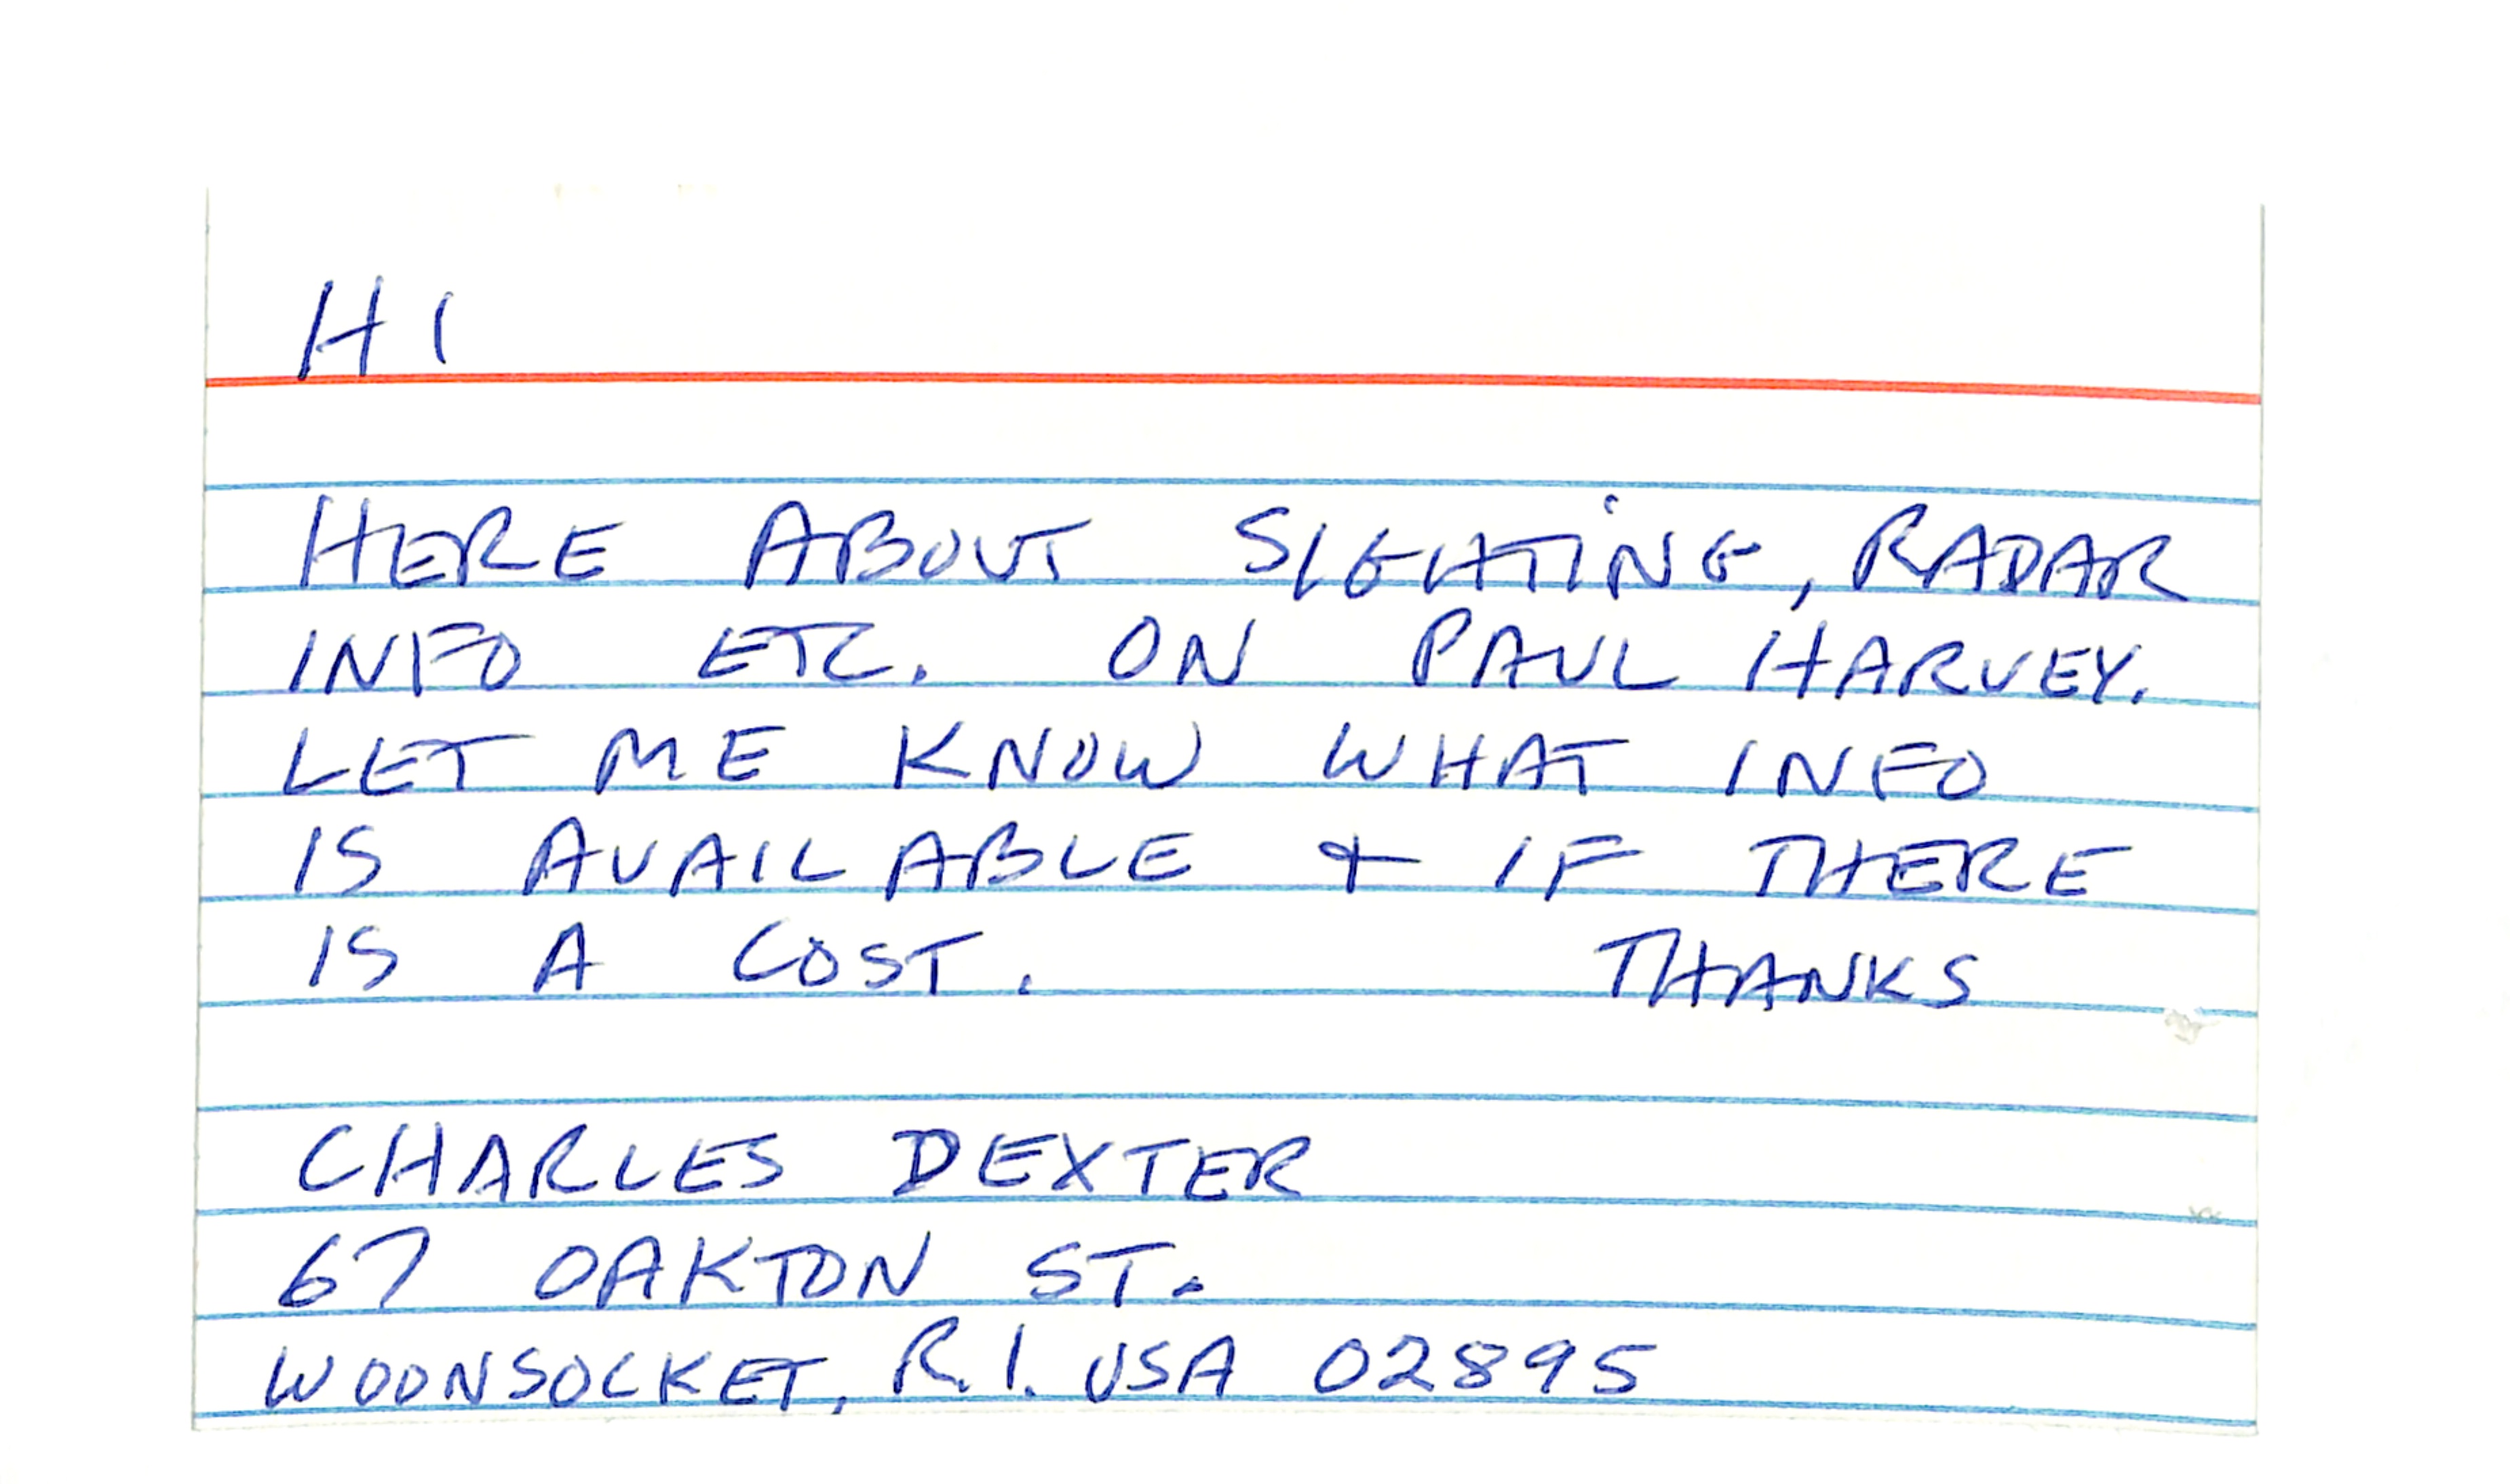 HI
HERE ABOUT SIGHTING, RADAR
INFO ETC. ON PAUL HARVEY.
LET ME KNOW WHAT INFO
IS AVAILABLE + IF THERE
IS A COST. THANKS
CHARLES DEXTER
67 OAKTON ST.
WOONSOCKET, R.I. USA 02895